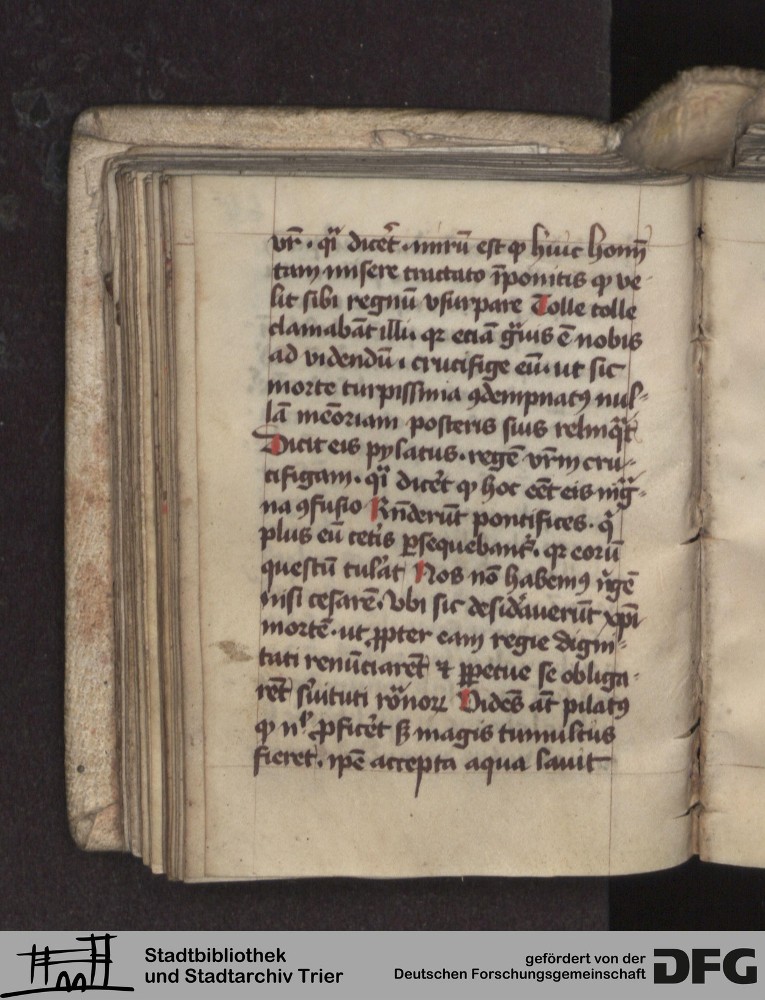 vr̄ · qi dicet · mirū est ꝙ huic homī
tam misere tractato īponitis ꝙ ve-
lit sibi regnū vsurpare Tolle tolle
clamabāt illi · qꝛ eciā gͣuis ē nobis
ad videndū · crucifige eū · ut sic
morte turpissima ꝯdempnatꝰ nul-
lā meoriam posteris suis relinqͣt
Dicit eis pylatus · regē vrm̄ cru-
cifigam · qi dicet ꝙ hoc eēt eis mͣg-
na ꝯfusio Rn̄derūt pontifices · qͥ
plus eū cetis ꝑsequebant · qꝛ eorū
questū tulāt Nos nō habemꝰ rͤgē
nisi cesarē · Vbi sic desidauerūt xp̄i
mortē · ut ꝓpter eam regie digni-
tati renūciarēt ⁊ ꝑpetue se obliga-
rēt suituti roͣnorꝝ Videns at pilatꝰ
ꝙ nͪ ꝓficet sꝫ magis tumultus
fieret · ipē accepta aqua lauit
Stadtbibliothek
und Stadtarchiv Trier
gefördert von der
Deutschen Forschungsgemeinschaft
DFG